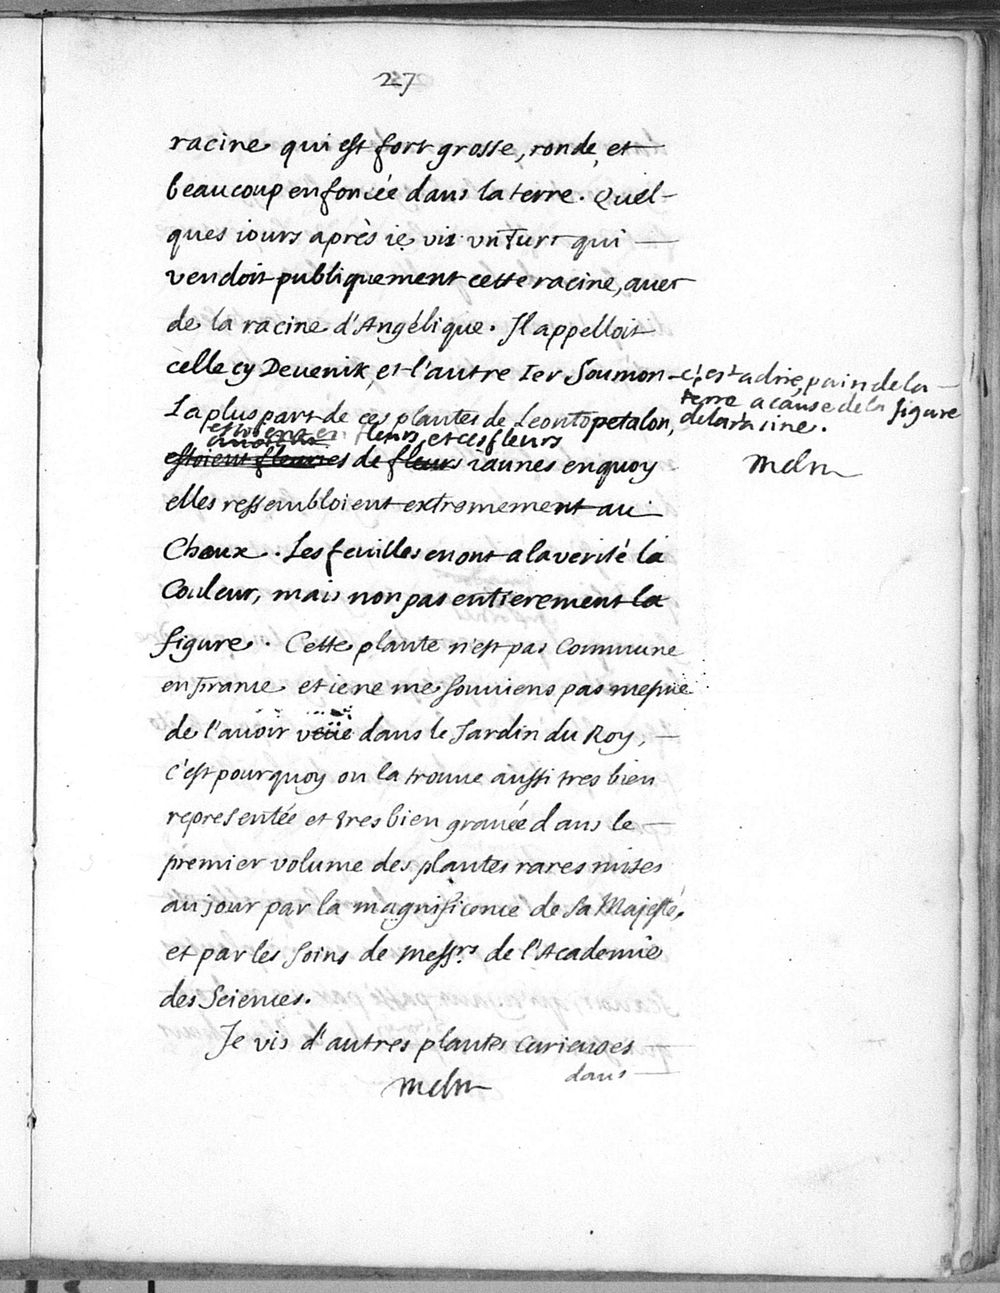 27
racine qui est fort grosse, ronde, et
beaucoup enfoncée dans la terre. Quel-
ques iours après ie vis un Turc qui
vendoit publiquement cette racine, avec
de la racine d'Angélique. Il appelloit
celle cy Devenik, et l'autre Ier Soumon
c'est a dire, pain de la
terre a cause de la figure
de la racine.
mdm
La plus part de ces plantes de Leontopetalon,
estoient en fleurs, et ces fleurs
estoient fleuries de fleurs iaunes en quoy
elles ressembloient extremement au
Choux. Les feuilles en ont a la verité la
Couleur, mais non pas entierement la
figure. Cette plante n'est pas Commune
en France et ie ne me souviens pas mesme
de l'avoir veüe dans le Jardin du Roy,
c'est pourquoy on la trouve aussi tres bien
representée et tres bien gravée dans le
premier volume des plantes rares mises
au jour par la magnificence de Sa Majesté,
et par les soins de Messrs. de l'Academie
des Sciences.
Je vis d'autres plantes curieuses
dans
mdm